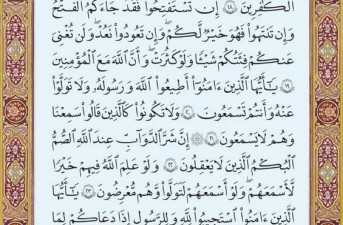 الْكَٰفِرِينَ ١٨ إِن تَسْتَفْتِحُوا۟ فَقَدْ جَآءَكُمُ الْفَتْحُ
وَإِن تَنتَهُوا۟ فَهُوَ خَيْرٌ لَّكُمْ وَإِن تَعُودُوا۟ نَعُدْ وَلَن تُغْنِىَ
عَنكُمْ فِئَتُكُمْ شَيْـًٔا وَلَوْ كَثُرَتْ وَأَنَّ اللَّهَ مَعَ الْمُؤْمِنِينَ
١٩ يَٰٓأَيُّهَا الَّذِينَ ءَامَنُوٓا۟ أَطِيعُوا۟ اللَّهَ وَرَسُولَهُۥ وَلَا تَوَلَّوْا۟
عَنْهُ وَأَنتُمْ تَسْمَعُونَ ٢٠ وَلَا تَكُونُوا۟ كَالَّذِينَ قَالُوا۟ سَمِعْنَا
وَهُمْ لَا يَسْمَعُونَ ٢١ إِنَّ شَرَّ الدَّوَآبِّ عِندَ اللَّهِ الصُّمُّ
الْبُكْمُ الَّذِينَ لَا يَعْقِلُونَ ٢٢ وَلَوْ عَلِمَ اللَّهُ فِيهِمْ خَيْرًا
لَّأَسْمَعَهُمْ وَلَوْ أَسْمَعَهُمْ لَتَوَلَّوا۟ وَّهُم مُّعْرِضُونَ ٢٣ يَٰٓأَيُّهَا
الَّذِينَ ءَامَنُوا۟ اسْتَجِيبُوا۟ لِلَّهِ وَلِلرَّسُولِ إِذَا دَعَاكُمْ لِمَا